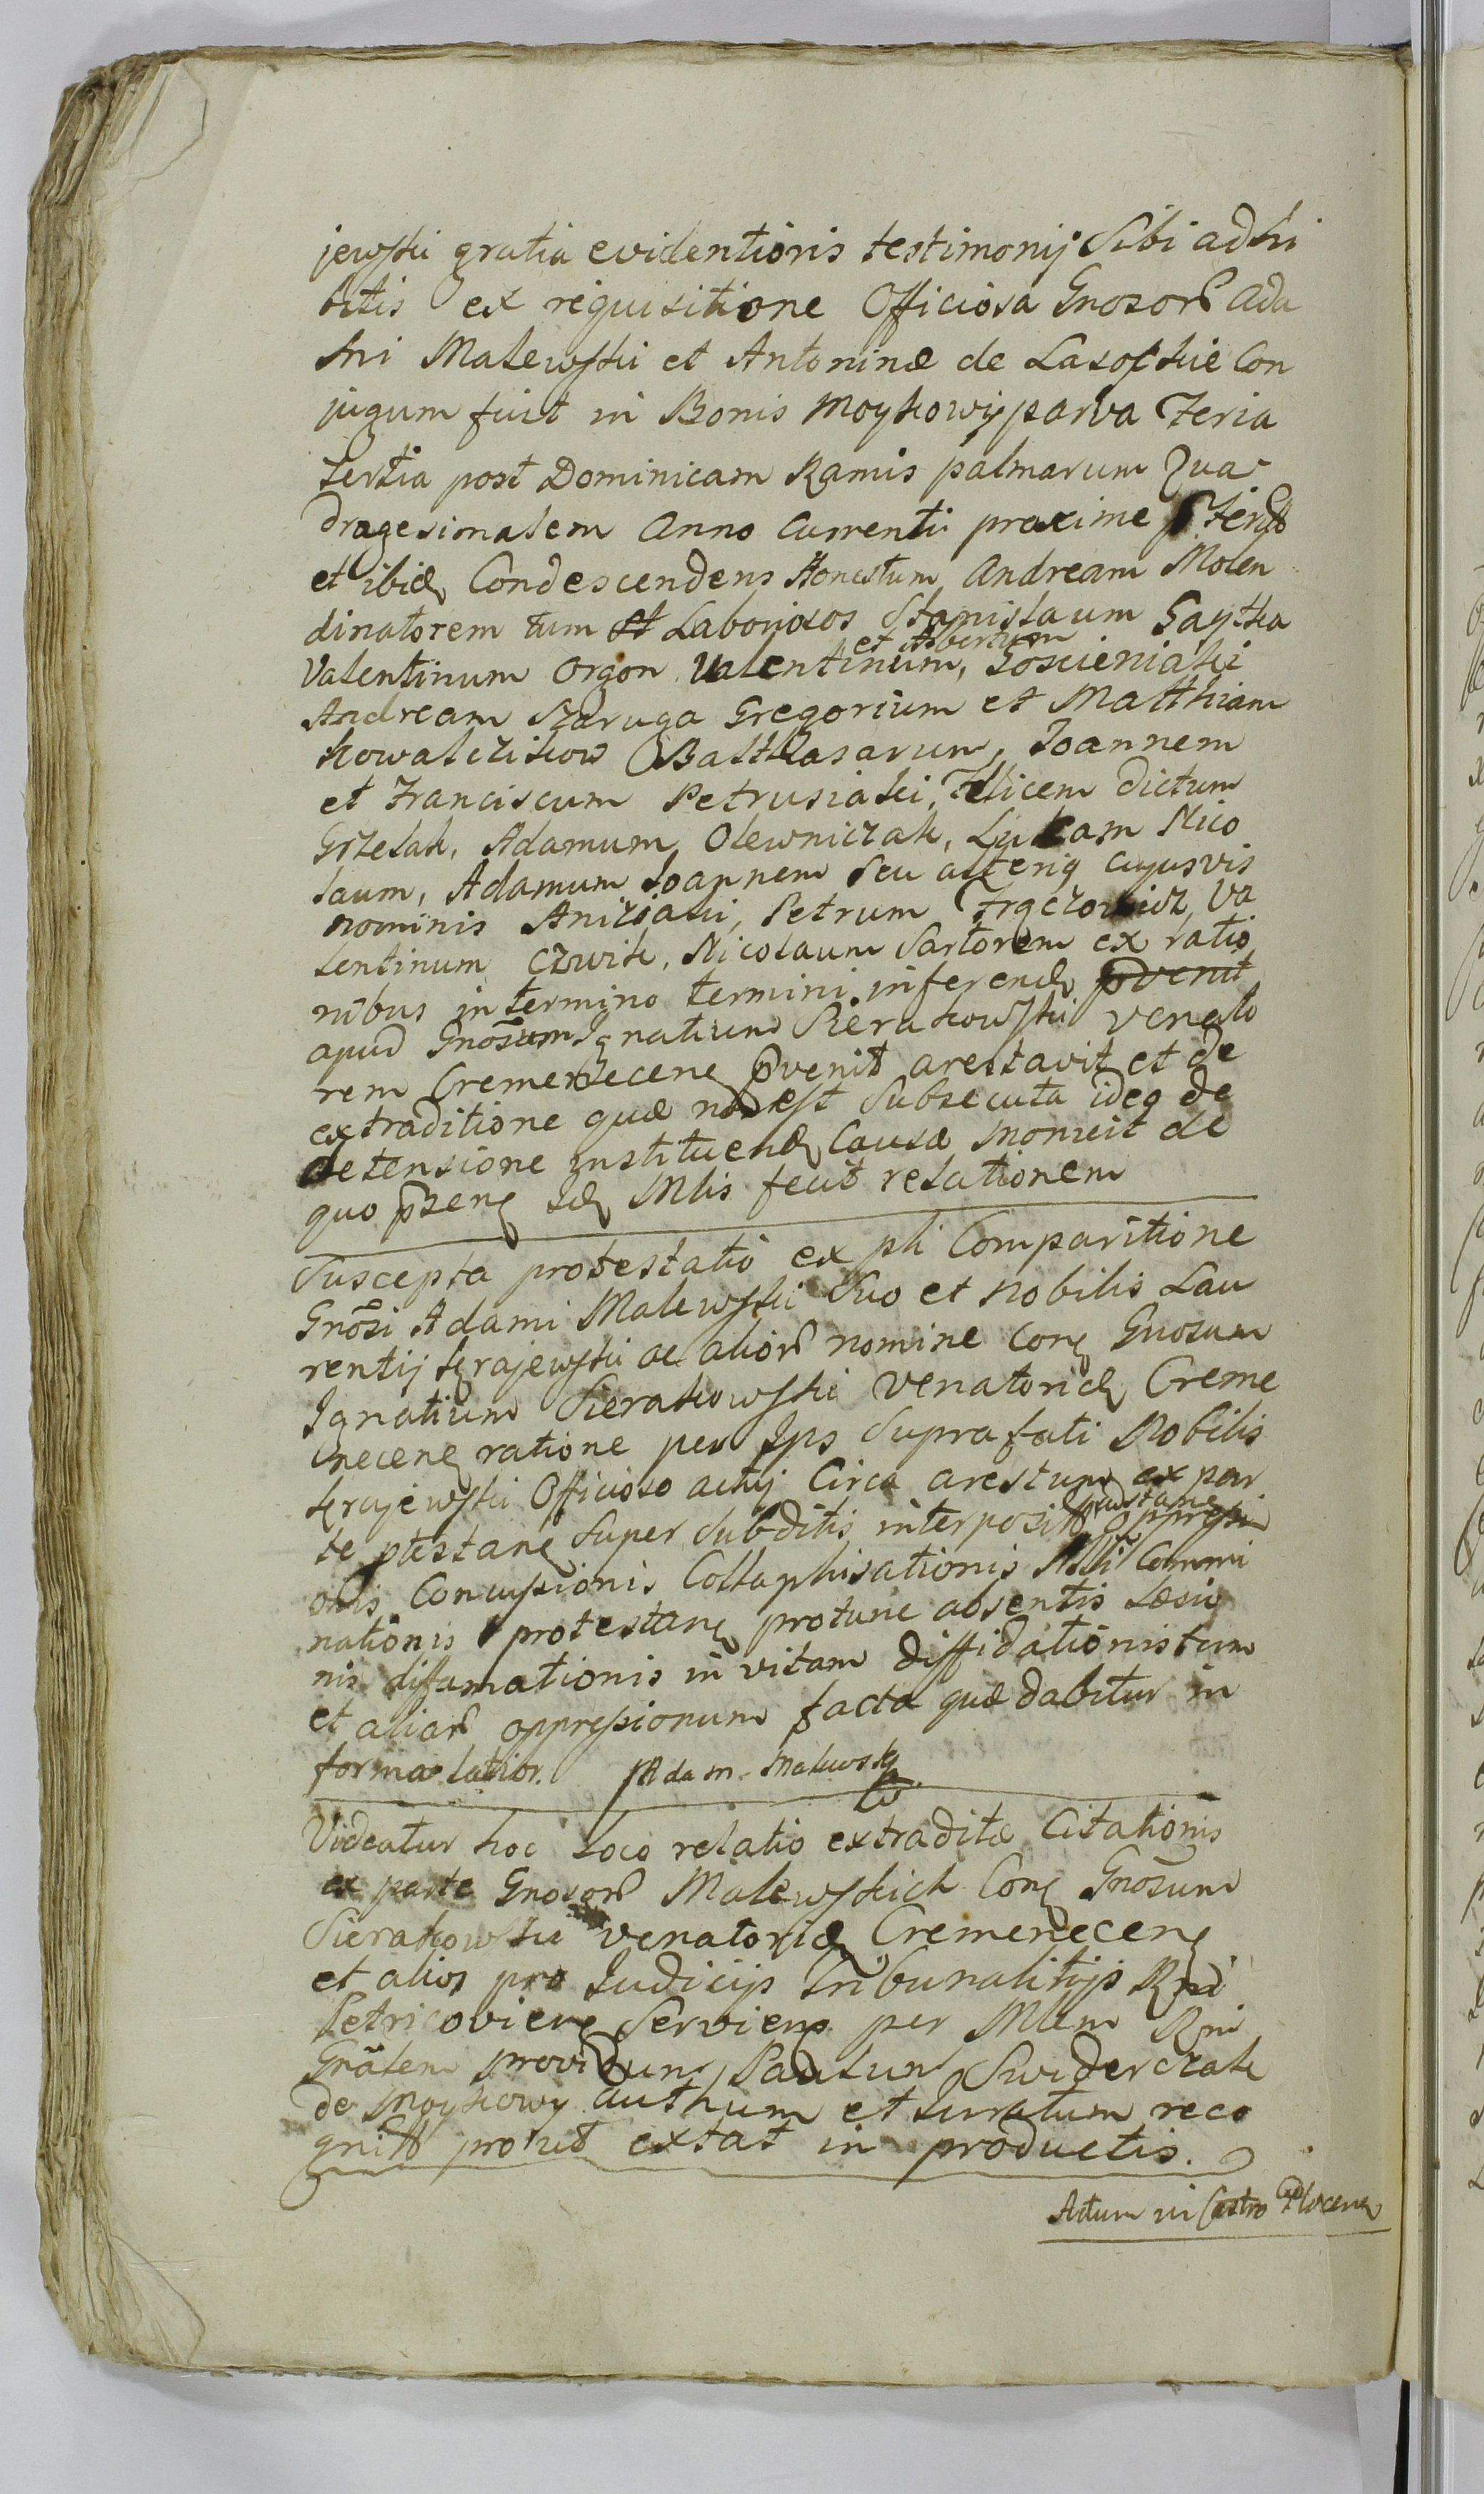 jewski gratia evidentioris testimonij Sibi adhi
bitis ex requisitione Officiosa Gnosor Ada
mi Malewski et Antoninæ de Lasoskie Con
jugum fuit in Bonis Moykowy parva Feria
tertia post Dominicam Ramis palmarum Qua
dragesimalem Anno Currenti proxime
et ibid Condescendens Honestum Andream Molen
dinatorem tum et Laboriosos Stanislaum Gayka
et Albertum
Valentinum Orgon Valentinum, Goscieniaki
Andream Szaruga Gregorium et Matthiam
Kowalczikow Balthasarum, Joannem
et Franciscum Petrusiaki, Felicem dictum
Grzelak, Adamum Olewniczak, Lukam Nico
laum, Adamum Joannem seu alteriq cujusvis
nominis Aniziaki, Petrum Frączowicz, Va
lentinum Czwik, Nicolaum Sartorem ex ratio
nibus in termino termini inferend pvenit
apud Gnosum Ignatium Sierakowski Venato
rem Cremenecene pvenit arestavit et de
extraditione quæ non est Subsecuta ideo de
detensione instituend Causæ monuit de
quo pzens id Mlis fecit relationem
Suscepta protestatio ex pli Comparitione
Gnosi Adami Malewski Suo et Nobilis Lau
rentij Krajewski ac alior nomine Con Gnosum
Ignatium Sierakowski Venatorid Creme
necene ratione per Ips Suprafati Nobilis
Krajewski Officioso actuj Circa arestum ex par
te ptestane Super Subditis interposito
adstane Oppressi
onis Concussionis Collaphisationis Mlti Commi
nationis protestane protunc absentis Læsio
nis diffamationis in vitam diffidationis tum
et aliar oppressionum facta quæ dabitur in
forma latior. Adam Malewski
Videatur hoc loco relatio extraditæ Citationis
ex parte Gnosor Malewskich Con Gnosum
Sierakowski Venatorid Cremenecene
et alios pro Judicijs Tribunalitijs Rni
Petricoviens Serviens per Mlem Rni
Gnalem providum Paulum Swiderczak
de Moykowy authum et Juratum reco
gnita prout extat in productis.
Actum in Castro Plocen